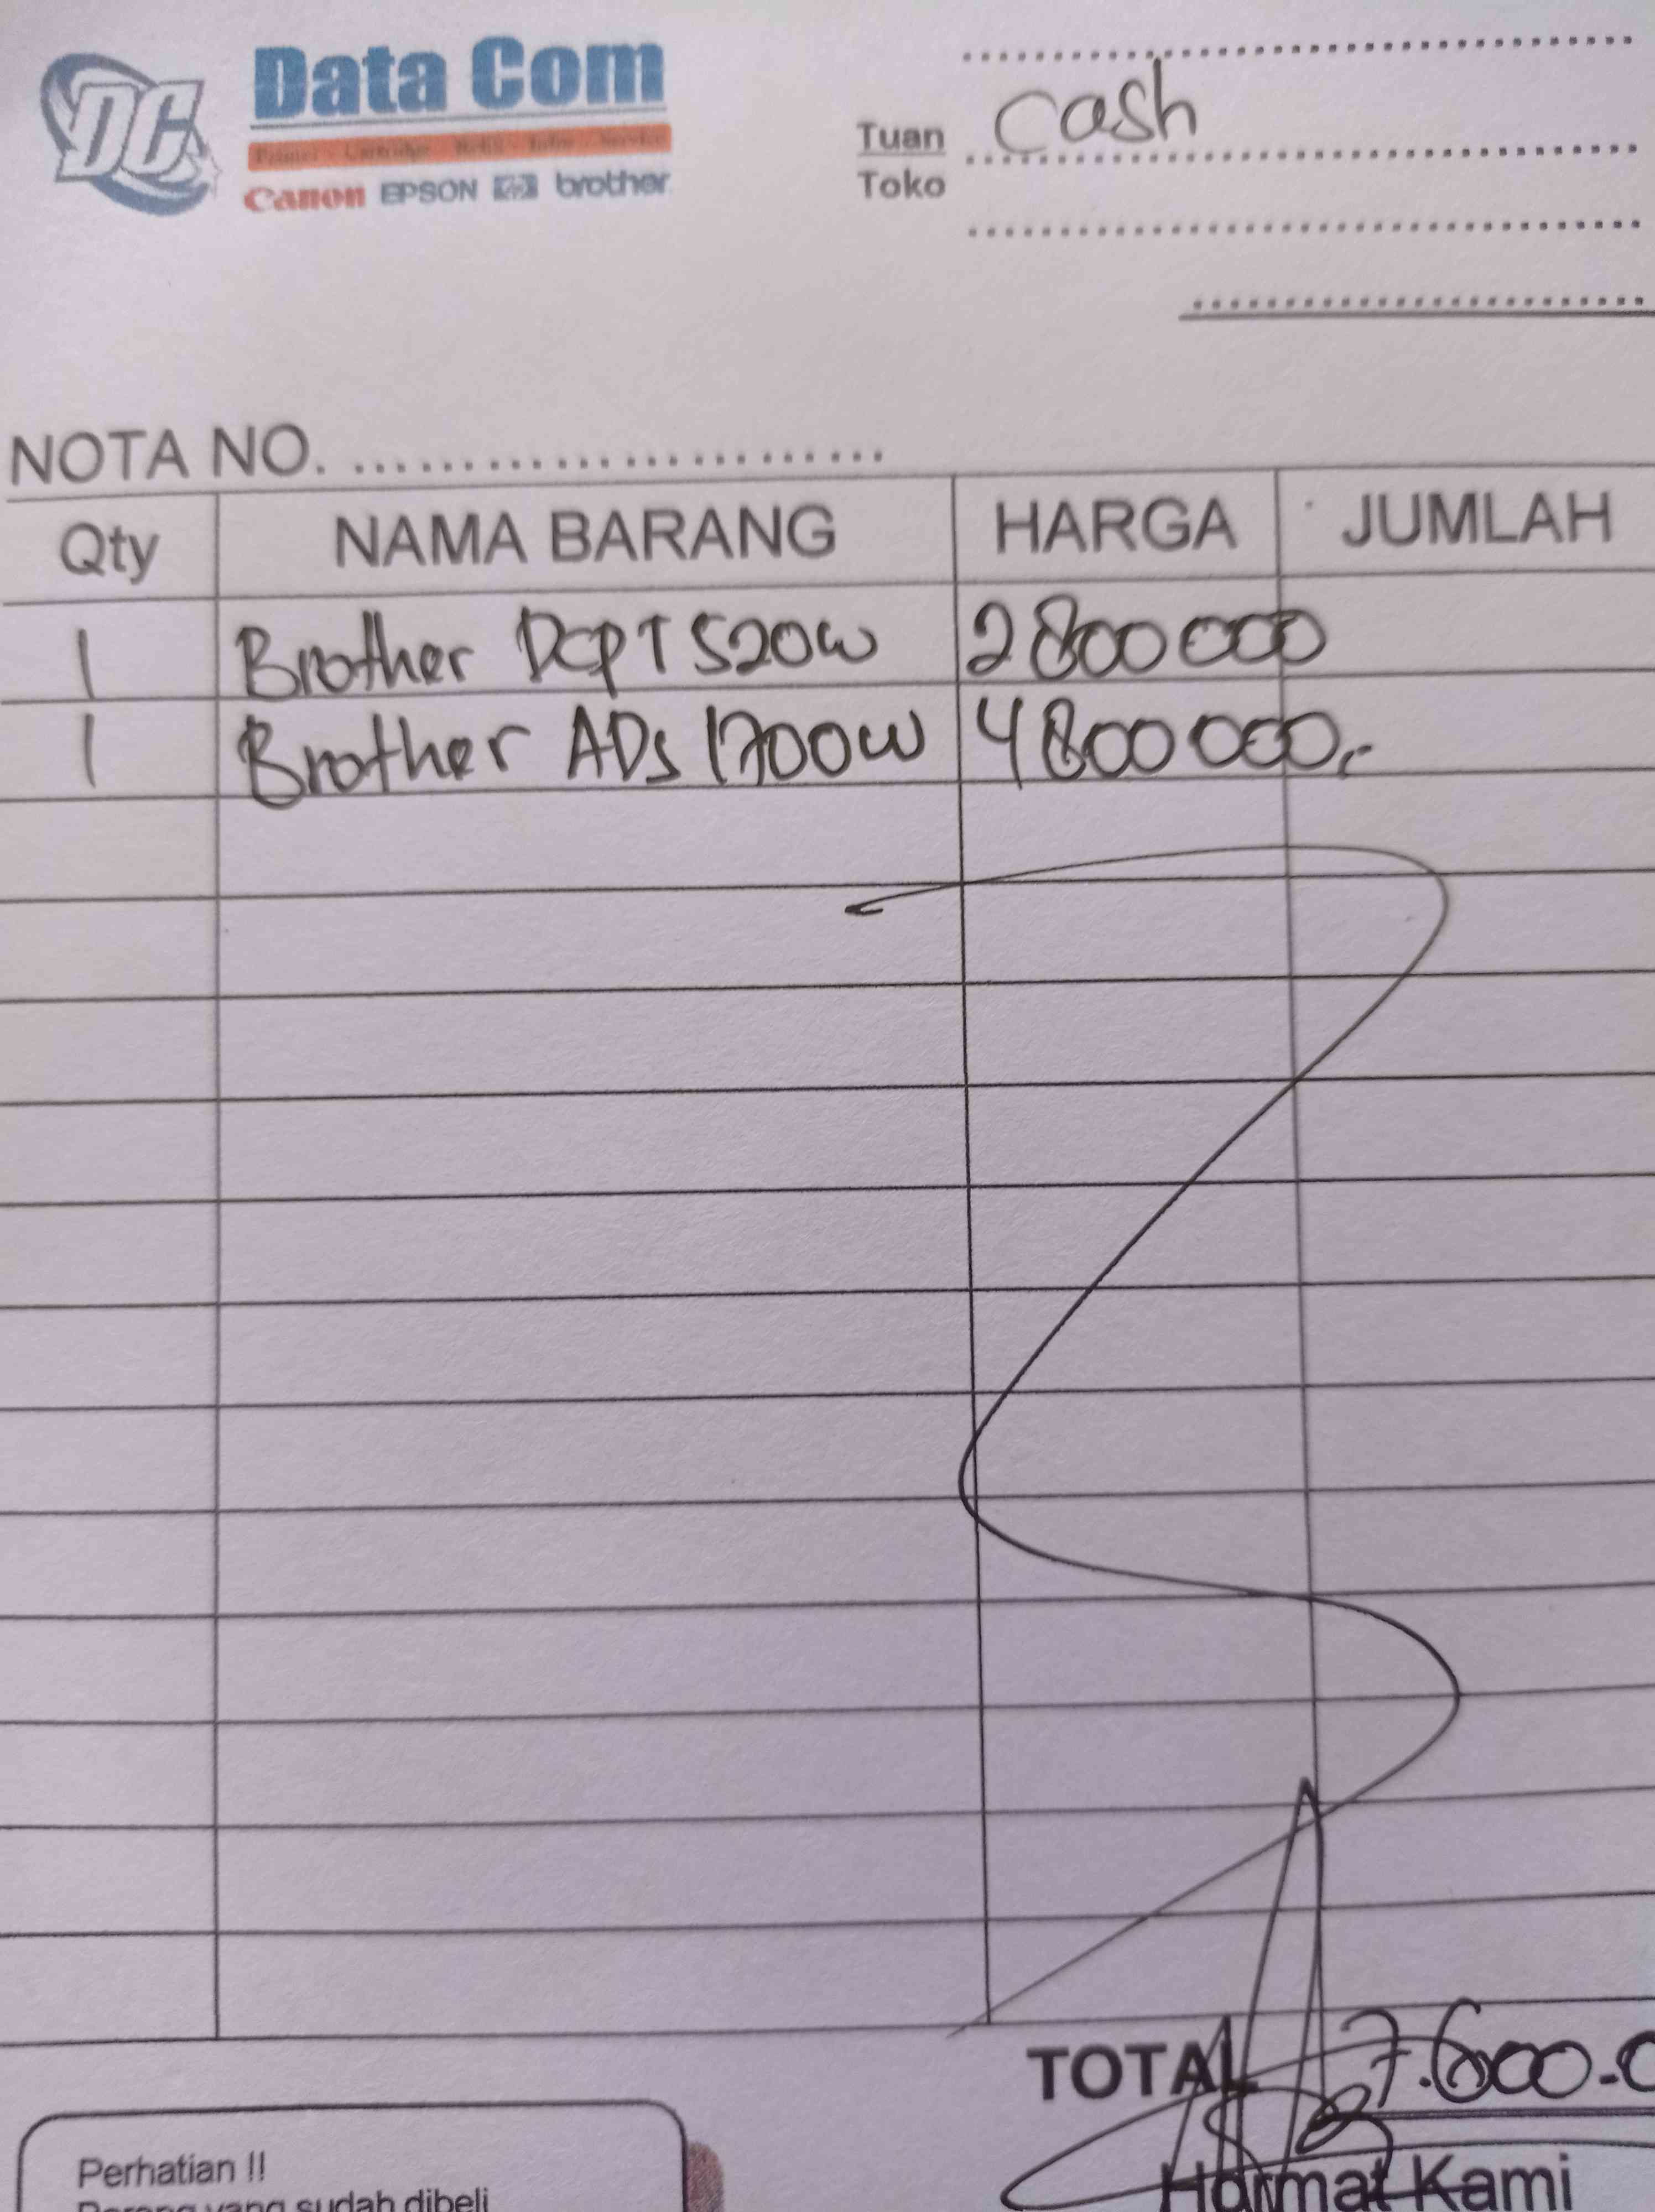 DC
Data Com
Printer - Cartridge - Refill - Infus - Service
Canon EPSON hp brother
Tuan cash
Toko
NOTA NO.
Qty NAMA BARANG HARGA JUMLAH
1 Brother DCPT520W 2800000
1 Brother ADS 1700W 4800000,-
TOTAL 7.600.0
Hormat Kami
Perhatian !!
Barang yang sudah dibeli